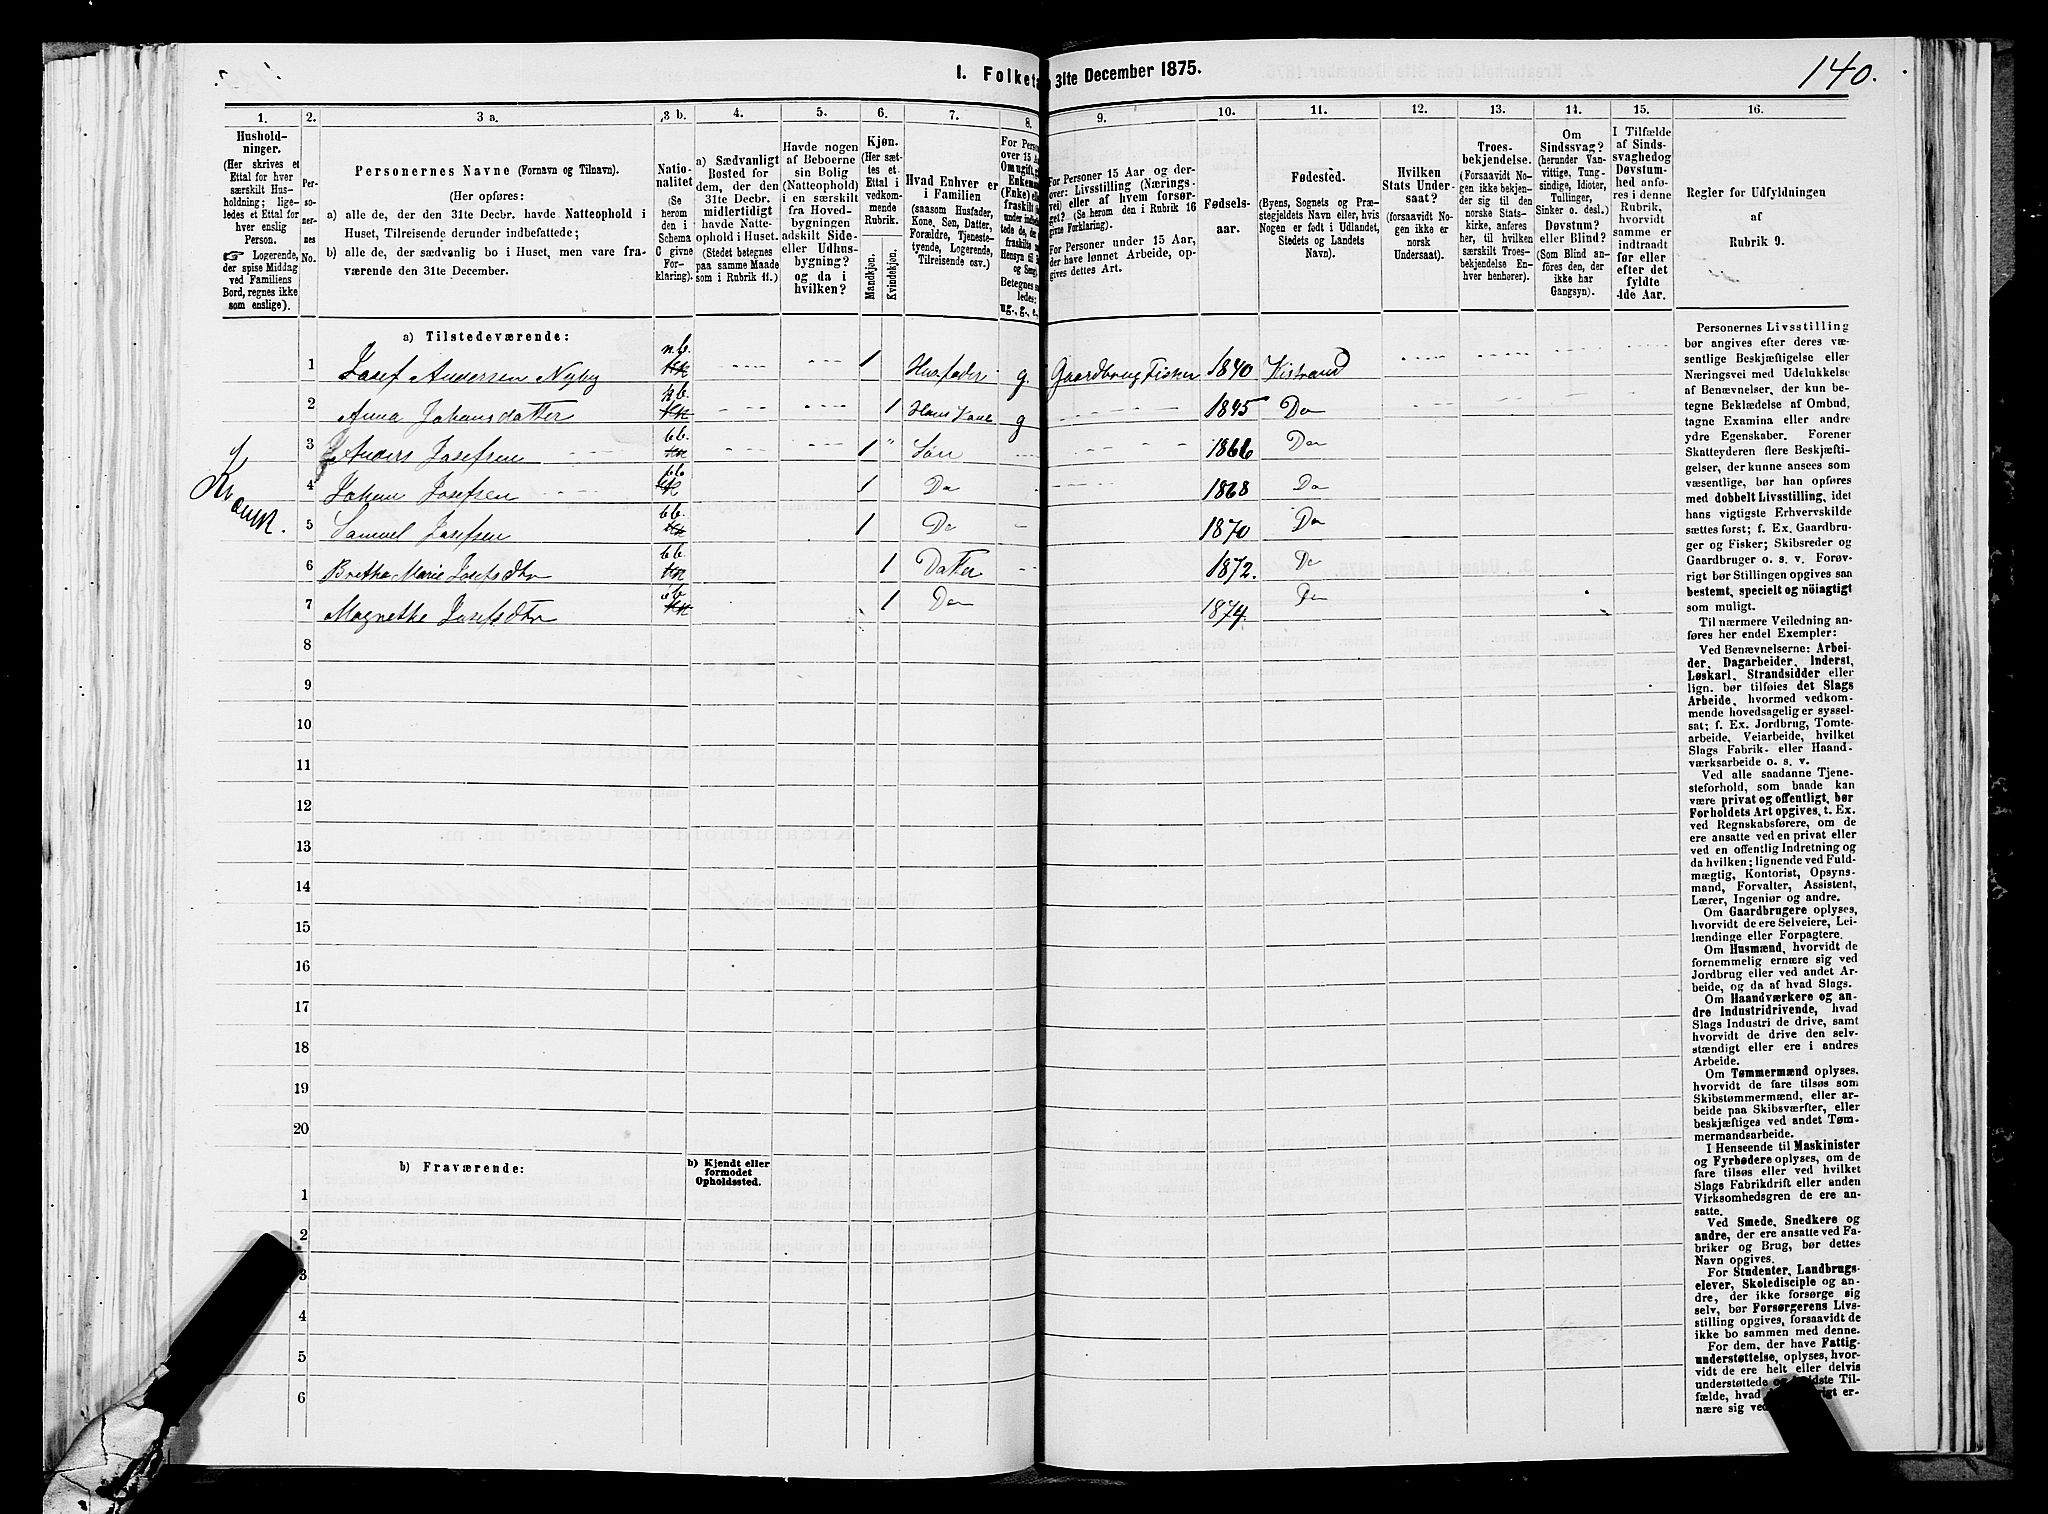 140.
I. Folketæ
31te December 1875.
1. 2. 3 a. 3 b. 4. 5. 6. 7. 8. 9. 10. 11. 12. 13. 14. 15. 16.
Hushold-
ninger.
(Her skrives et
Ettal for hver
særskilt Hus-
holdning; lige-
ledes et Ettal for
hver enslig
Person.
☞ Logerende,
der spise Middag
ved Familiens
Bord, regnes ikke
som enslige).
Per-
sone-
rnes
No.
Personernes Navne (Fornavn og Tilnavn).
(Her opføres:
a) alle de, der den 31te Decbr. havde Natteophold i
Huset, Tilreisende derunder indbefattede;
b) alle de, der sædvanlig bo i Huset, men vare fra-
værende den 31te December).
Natio-
nalitet
(Se
herom
den i
Schema
C givne
For-
klaring).
a) Sædvanligt
Bosted for
dem, der den
31te Decbr.
midlertidigt
havde Natte-
ophold i Huset.
(Stedet betegnes
paa samme Maade
som i Rubrik 11.)
Havde nogen
af Beboerne
sin Bolig
(Natteophold)
i en særskilt
fra Hoved-
bygningen
adskilt Side-
eller Udhus-
bygning?
og da i
hvilken?
Kjøn.
(Her sæt-
tes et
Ettal i
vedkom-
mende
Rubrik.
Mandkjøn.
Kvindekjøn.
Hvad Enhver er
i Familien
(saasom Husfader,
Kone, Søn, Datter,
Forældre, Tjeneste-
tyende, Logerende,
Tilreisende osv.)
For Personer 15 Aar og der-
over: Livsstilling (Nærings-
vei) eller af hvem forsør-
get? (Se herom den i Rubrik 16
givne Forklaring).
For Personer under 15 Aar,
der have lønnet Arbeide, op-
gives dettes Art.
Fødsels-
aar.
Fødested.
(Byens, Sognets og Præ-
stegjeldets Navn eller, hvis
Nogen er født i Udlandet,
Stedets og Landets
Navn).
Hvilken
Stats Under-
saat?
(forsaavidt No-
gen ikke er
norsk
Undersaat).
Troes-
bekjendelse.
(Forsaavidt No-
gen ikke bekjen-
der sig til den
norske Stats-
kirke, anføres
her, til hvilken
særskilt Troes-
bekjendelse En-
hver henhører).
Om
Sindssvag?
(herunder Van-
vittige, Tung-
sindige, Idioter,
Tullinger,
Sinker o. desl.)
Døvstum?
eller Blind?
(Som Blind an-
føres den, der
ikke har
Gangsyn).
I Tilfælde
af Sinds-
svaghed og
Døvstum-
hed anfø-
res i denne
Rubrik,
hvorvidt
samme er
indtraadt
før eller
efter det
fyldte
4de Aar.
Regler for Udfyldningen
af
Rubrik 9.
a) Tilstedeværende:
1 Josef Andersen Nyby n.b. 1 Husfader g. Gaardbrug Fisker 1840 Kistrand
2 Anna Johansdatter n.b. 1 Hans Kone g 1845 Do
3 Anders Josefsen b b. 1 " Søn 1866 Do
4 Johan Josefsen b b 1 Do 1868 Do
5 Samuel Josefsen b b. 1 Do 1870 Do
6 Bretha Marie Josefsdtr b b. 1 Datter 1872. Do
7 Magrethe Josefsdtr b b 1 Do 1874. Do
8
9
10
11
12
13
14
15
16
17
18
19
20
b) Fraværende:
b) Kjendt eller
formodet
Opholdssted.
1
2
3
4
5
6
Personernes Livsstilling
bør angives efter deres væ-
sentlige Beskjæftigelse eller
Næringsvei med Udelukkelse
af Benævnelser, der kun be-
tegne Beklædelse af Ombud,
tagne Examina eller andre
ydre Egenskaber. Forener
Skatteyderen flere Beskjæfti-
gelser, der kunne ansees som
væsentlige, bør han opføres
med dobbelt Livsstilling, idet
hans vigtigste Erhvervskilde
sættes først; f. Ex. Gaardbru-
ger og Fisker; Skibsreder og
Gaardbruger o. s. v. Forøv-
rigt bør Stillingen opgives saa
bestemt, specielt og nöiagtigt
som muligt.
Til nærmere Veiledning an-
føres her endel Exempler:
Ved Benævnelserne: Arbei-
der, Dagarbeider, Inderst,
Løskarl, Strandsidder eller
lign. bør tilføies det Slags
Arbeide, hvormed vedkom-
mende hovedsagelig er syssel-
sat; f. Ex. Jordbrug, Tomte-
arbeide, Veiarbeide, hvilket
Slags Fabrik- eller Haand-
værksarbeide o. s. v.
Ved alle saadanne Tjene-
steforhold, som baade kan
være privat og offentligt, bør
Forholdets Art opgives, t. Ex.
ved Regnskabsførere, om de
ere ansatte ved en privat eller
ved en offentlig Indretning og
da hvilken; lignende ved Fuld-
mægtig, Kontorist, Opsyns-
mand, Forvalter, Assistent,
Lærer, Ingeniør og andre.
Om Gaardbrugere oplyses,
hvorvidt de ere Selveiere, Lei-
lændinge eller Forpagtere.
Om Husmænd, hvorvidt de
fornemmelig ernære sig ved
Jordbrug eller ved andet Ar-
beide, og da af hvad Slags.
Om Haandværkere og an-
dre Industridrivende, hvad
Slags Industri de drive, samt
hvorvidt de drive den selv-
stændigt eller ere i andres
Arbeide.
Om Tømmermænd oplyses,
hvorvidt de fare tilsøs som
Skibstømmermænd, eller ar-
beide paa Skibsværfter, eller
beskjæftiges ved andet Tøm-
mermandsarbeide.
I Henseende til Maskinister
og Fyrbødere oplyses, om de
fare tilsøs eller ved hvilket
Slags Fabrikdrift eller anden
Virksomhedsgren de ere an-
satte.
Ved Smede, Snedkere og
andre, der ere ansatte ved Fa-
briker og Brug, bør dettes
Navn opgives.
For Studenter, Landbrugs-
elever, Skoledisciple og an-
dre, der ikke forsørge sig
selv, bør Forsørgerens Livs-
stilling opgives, forsaavidt de
ikke bo sammen med denne.
For dem, der have Fattig-
understøttelse, oplyses, hvor-
vidt de ere helt eller delvis
understøttede
fælde, hvad
nære sig ved